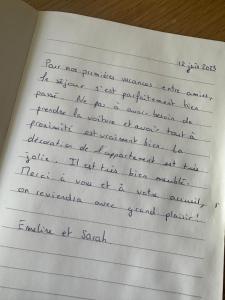 12 juin 2023
Pour nos premières vacances entre amies,
le séjour s'est parfaitement bien
passé. Ne pas à avoir besoin de
prendre la voiture et avoir tout à
proximité est vraiment bien. La
décoration de l'appartement est très
jolie. Il est très bien meublé.
Merci à vous et à votre accueil,
on reviendra avec grand plaisir !
Emeline et Sarah